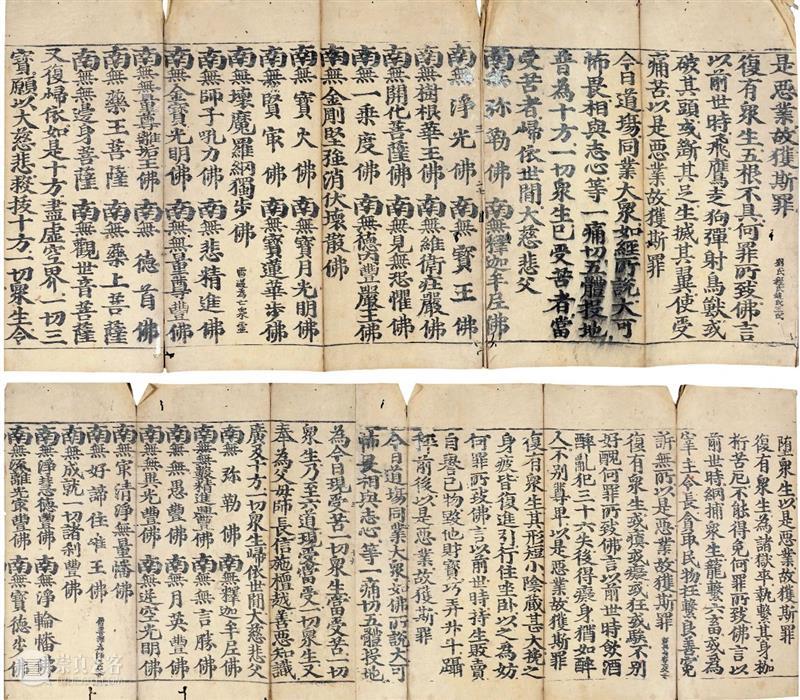 是惡業故獲斯罪
復有眾生五根不具何罪所致佛言
以前世時飛鷹走狗彈射鳥獸或
破其頭或斷其足生搣其翼使受
痛苦以是惡業故獲斯罪
今日道場同業大眾如經所說大可
怖畏相與志心等一痛切五體投地
普為十方一切眾生已受苦者當
受苦者歸依世間大慈悲父
南無弥勒佛 南無釋迦牟尼佛
南無淨光佛 南無寶王佛
南無樹根華王佛 南無維衛莊嚴佛
南無開化菩薩佛 南無見無恐懼佛
南無一乘度佛 南無德內豐嚴王佛
南無金剛堅強消伏壞散佛
南無寶火佛 南無寶月光明佛
南無賢㝡佛 南無寶蓮華步佛
南無壞魔羅網獨步佛
南無師子吼力佛 南無悲精進佛
南無金寶光明佛 南無無量尊豐佛
南無無量尊離垢王佛 南無德首佛
南無藥王菩薩 南無藥上菩薩
南無無邊身菩薩 南無觀世音菩薩
又復歸依如是十方盡虛空界一切三
寶願以大慈悲救拔十方一切眾生令
墮眾生以是惡業故獲斯罪
復有眾生為諸獄卒執繫其身枷
桁苦厄不能得免何罪所致佛言以
前世時網捕眾生籠繫六畜或為
宰主令長貪取民物枉繫良善冤
訴無所以是惡業故獲斯罪
復有眾生或瘨或癡或狂或騃不別
好醜何罪所致佛言以前世時飲酒
醉亂犯三十六失後得癡身猶如醉
人不別尊卑以是惡業故獲斯罪
復有眾生其形短小陰藏甚大挽之
身疲皆復進引行住坐臥以之為妨
何罪所致佛言以前世時持生販賣
自譽己物毀他財寶巧弄升斗躡
秤前後以是惡業故獲斯罪
今日道場同業大眾如佛所說大可
怖畏相與志心等一痛切五體投地
為今日現受苦一切眾生當受苦一切
眾生乃至六道現受當受一切眾生又
奉為父母師長信施檀越善惡知識
廣及十方一切眾生歸依世間大慈悲父
南無弥勒佛 南無釋迦牟尼佛
南無無數精進豐佛 南無無言勝佛
南無無愚豐佛 南無月英豐佛
南無無異光豐佛 南無逆空光明佛
南無㝡清淨無量幡佛
南無好諦住唯王佛
南無成就一切諸剎豐佛
南無淨慧德豐佛 南無淨輪幡佛
南無琉離光㝡豐佛 南無寶德步佛